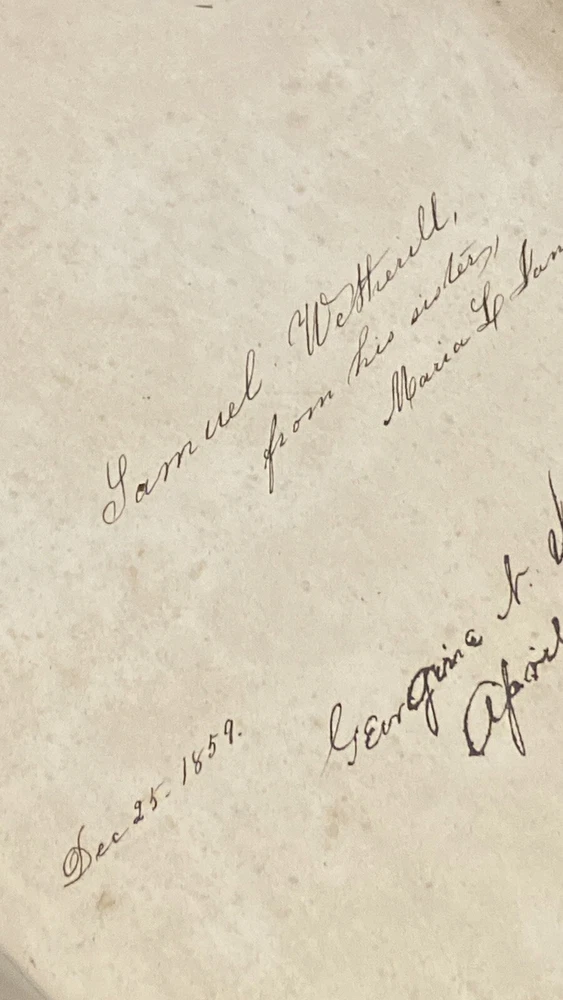 Samuel Wetherill,
from his sister,
Maria L
Georgine N.
April
Dec 25. 1859.